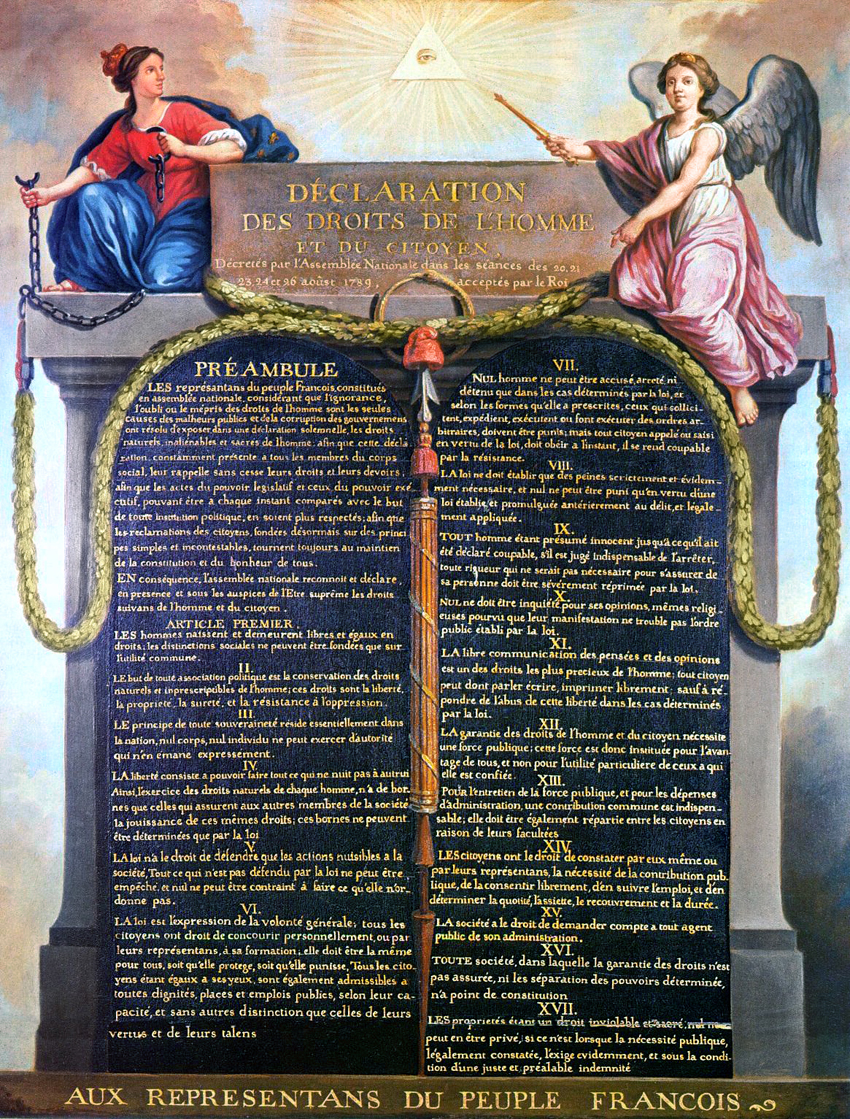 DÉCLARATION
DES DROITS DE L'HOMME
ET DU CITOYEN,
Décretés par l'Assemblée Nationale dans les séances des 20. 21
23. 24 et 26 aoûst 1789, acceptés par le Roi
PRÉAMBULE
LES représantans du peuple Francois, constitués
en assemblée nationale, considérant que l'ignorance,
l'oubli ou le mépris des droits de l'homme sont les seules
causes des malheurs publics et de la corruption des gouvernemens
ont résolu d'exposer dans une déclaration solemnelle, les droits
naturels, inaliénables et sacrés de l'homme: afin que cette décla
ration, constamment présente a tous les membres du corps
social, leur rappelle sans cesse leurs droits et leurs devoirs,
afin que les actes du pouvoir legislatif et ceux du pouvoir exé-
cutif, pouvant être a chaque instant comparés avec le but
de toute institution politique, en soient plus respectés; afin que
les reclamations des citoyens, fondées désormais sur des princi
pes simples et incontestables, tournent toujours au maintien
de la constitution et du bonheur de tous.
EN conséquence, l'assemblée nationale reconnoit et déclare,
en presence et sous les auspices de l'Etre suprême les droits
suivans de l'homme et du citoyen.
ARTICLE PREMIER.
LES hommes naissent et demeurent libres et égaux en
droits: les distinctions sociales ne peuvent être fondées que sur
l'utilité commune.
II.
LE but de toute association politique est la conservation des droits
naturels et inprescriptibles de l'homme; ces droits sont la liberté,
la proprieté, la sureté, et la résistance à l'oppression.
III.
LE principe de toute souveraineté réside essentiellement dans
la nation, nul corps, nul individu ne peut exercer d'autorité
qui n'en émane expressement.
IV.
LA liberté consiste a pouvoir faire tout ce qui ne nuit pas à autrui
Ainsi, l'exercice des droits naturels de chaque homme, n'a de bor-
nes que celles qui assurent aux autres membres de la société
la jouissance de ces mêmes droits; ces bornes ne peuvent
être déterminées que par la loi
V.
LA loi n'a le droit de défendre que les actions nuisibles a la
société, Tout ce qui n'est pas défendu par la loi ne peut être
empêché, et nul ne peut être contraint à faire ce qu'elle n'or-
donne pas.
VI.
LA loi est l'expression de la volonté générale; tous les
citoyens ont droit de concourir personnellement, ou par
leurs représentans, à sa formation; elle doit être la même
pour tous, soit qu'elle protege, soit qu'elle punisse, Tous les cito-
yens étant égaux a ses yeux, sont également admissibles a
toutes dignités, places et emplois publics, selon leur ca-
pacité, et sans autres distinction que celles de leurs
vertus et de leurs talens
VII.
NUL homme ne peut être accusé, arreté ni
détenu que dans les cas déterminés par la loi, et
selon les formes qu'elle a prescrites, ceux qui sollici-
tent, expédient, exécutent ou font exécuter des ordres ar-
bitraires, doivent être punis; mais tout citoyen appelé ou saisi
en vertu de la loi, doit obeir a l'instant, il se rend coupable
par la résistance.
VIII.
LA loi ne doit établir que des peines strictement et évidem-
ment nécessaire, et nul ne peut être puni qu'en vertu d'une
loi établie, et promulguée antérierement au délit, et légale-
ment appliquée.
IX.
TOUT homme étant présumé innocent jusqu'a ce qu'il ait
été déclaré coupable, s'il est jugé indispensable de l'arrêter,
toute rigueur qui ne serait pas nécessaire pour s'assurer de
sa personne doit être sévèrement réprimée par la loi.
X.
NUL ne doit être inquiété pour ses opinions, mêmes religi-
euses pourvu que leur manifestation ne trouble pas l'ordre
public établi par la loi.
XI.
LA libre communication des pensées et des opinions
est un des droits les plus precieux de l'homme; tout citoyen
peut dont parler écrire, imprimer librement: sauf à ré-
pondre de l'abus de cette liberté dans les cas déterminés
par la loi.
XII.
LA garantie des droits de l'homme et du citoyen nécessite
une force publique; cette force est donc instituée pour l'avan-
tage de tous, et non pour l'utilité particuliere de ceux a qui
elle est confiée.
XIII.
POUR l'entretien de la force publique, et pour les dépenses
d'administration, une contribution commune est indispen-
sable; elle doit être également répartie entre les citoyens en
raison de leurs facultées
XIV.
LES citoyens ont le droit de constater par eux même ou
par leurs représentans, la nécessité de la contribution pub-
lique, de la consentir librement, d'en suivre l'emploi, et d'en
déterminer la quotité, l'assiette, le recouvrement et la durée.
XV.
LA société a le droit de demander compte a tout agent
public de son administration.
XVI.
TOUTE société, dans laquelle la garantie des droits n'est
pas assurée, ni les séparation des pouvoirs déterminée,
n'a point de constitution
XVII.
LES proprietés étant un droit inviolable et sacré, nul ne
peut en être privé, si ce n'est lorsque la nécessité publique,
légalement constatée, l'exige evidemment, et sous la condi-
tion d'une juste et préalable indemnité
AUX REPRESENTANS DU PEUPLE FRANCOIS